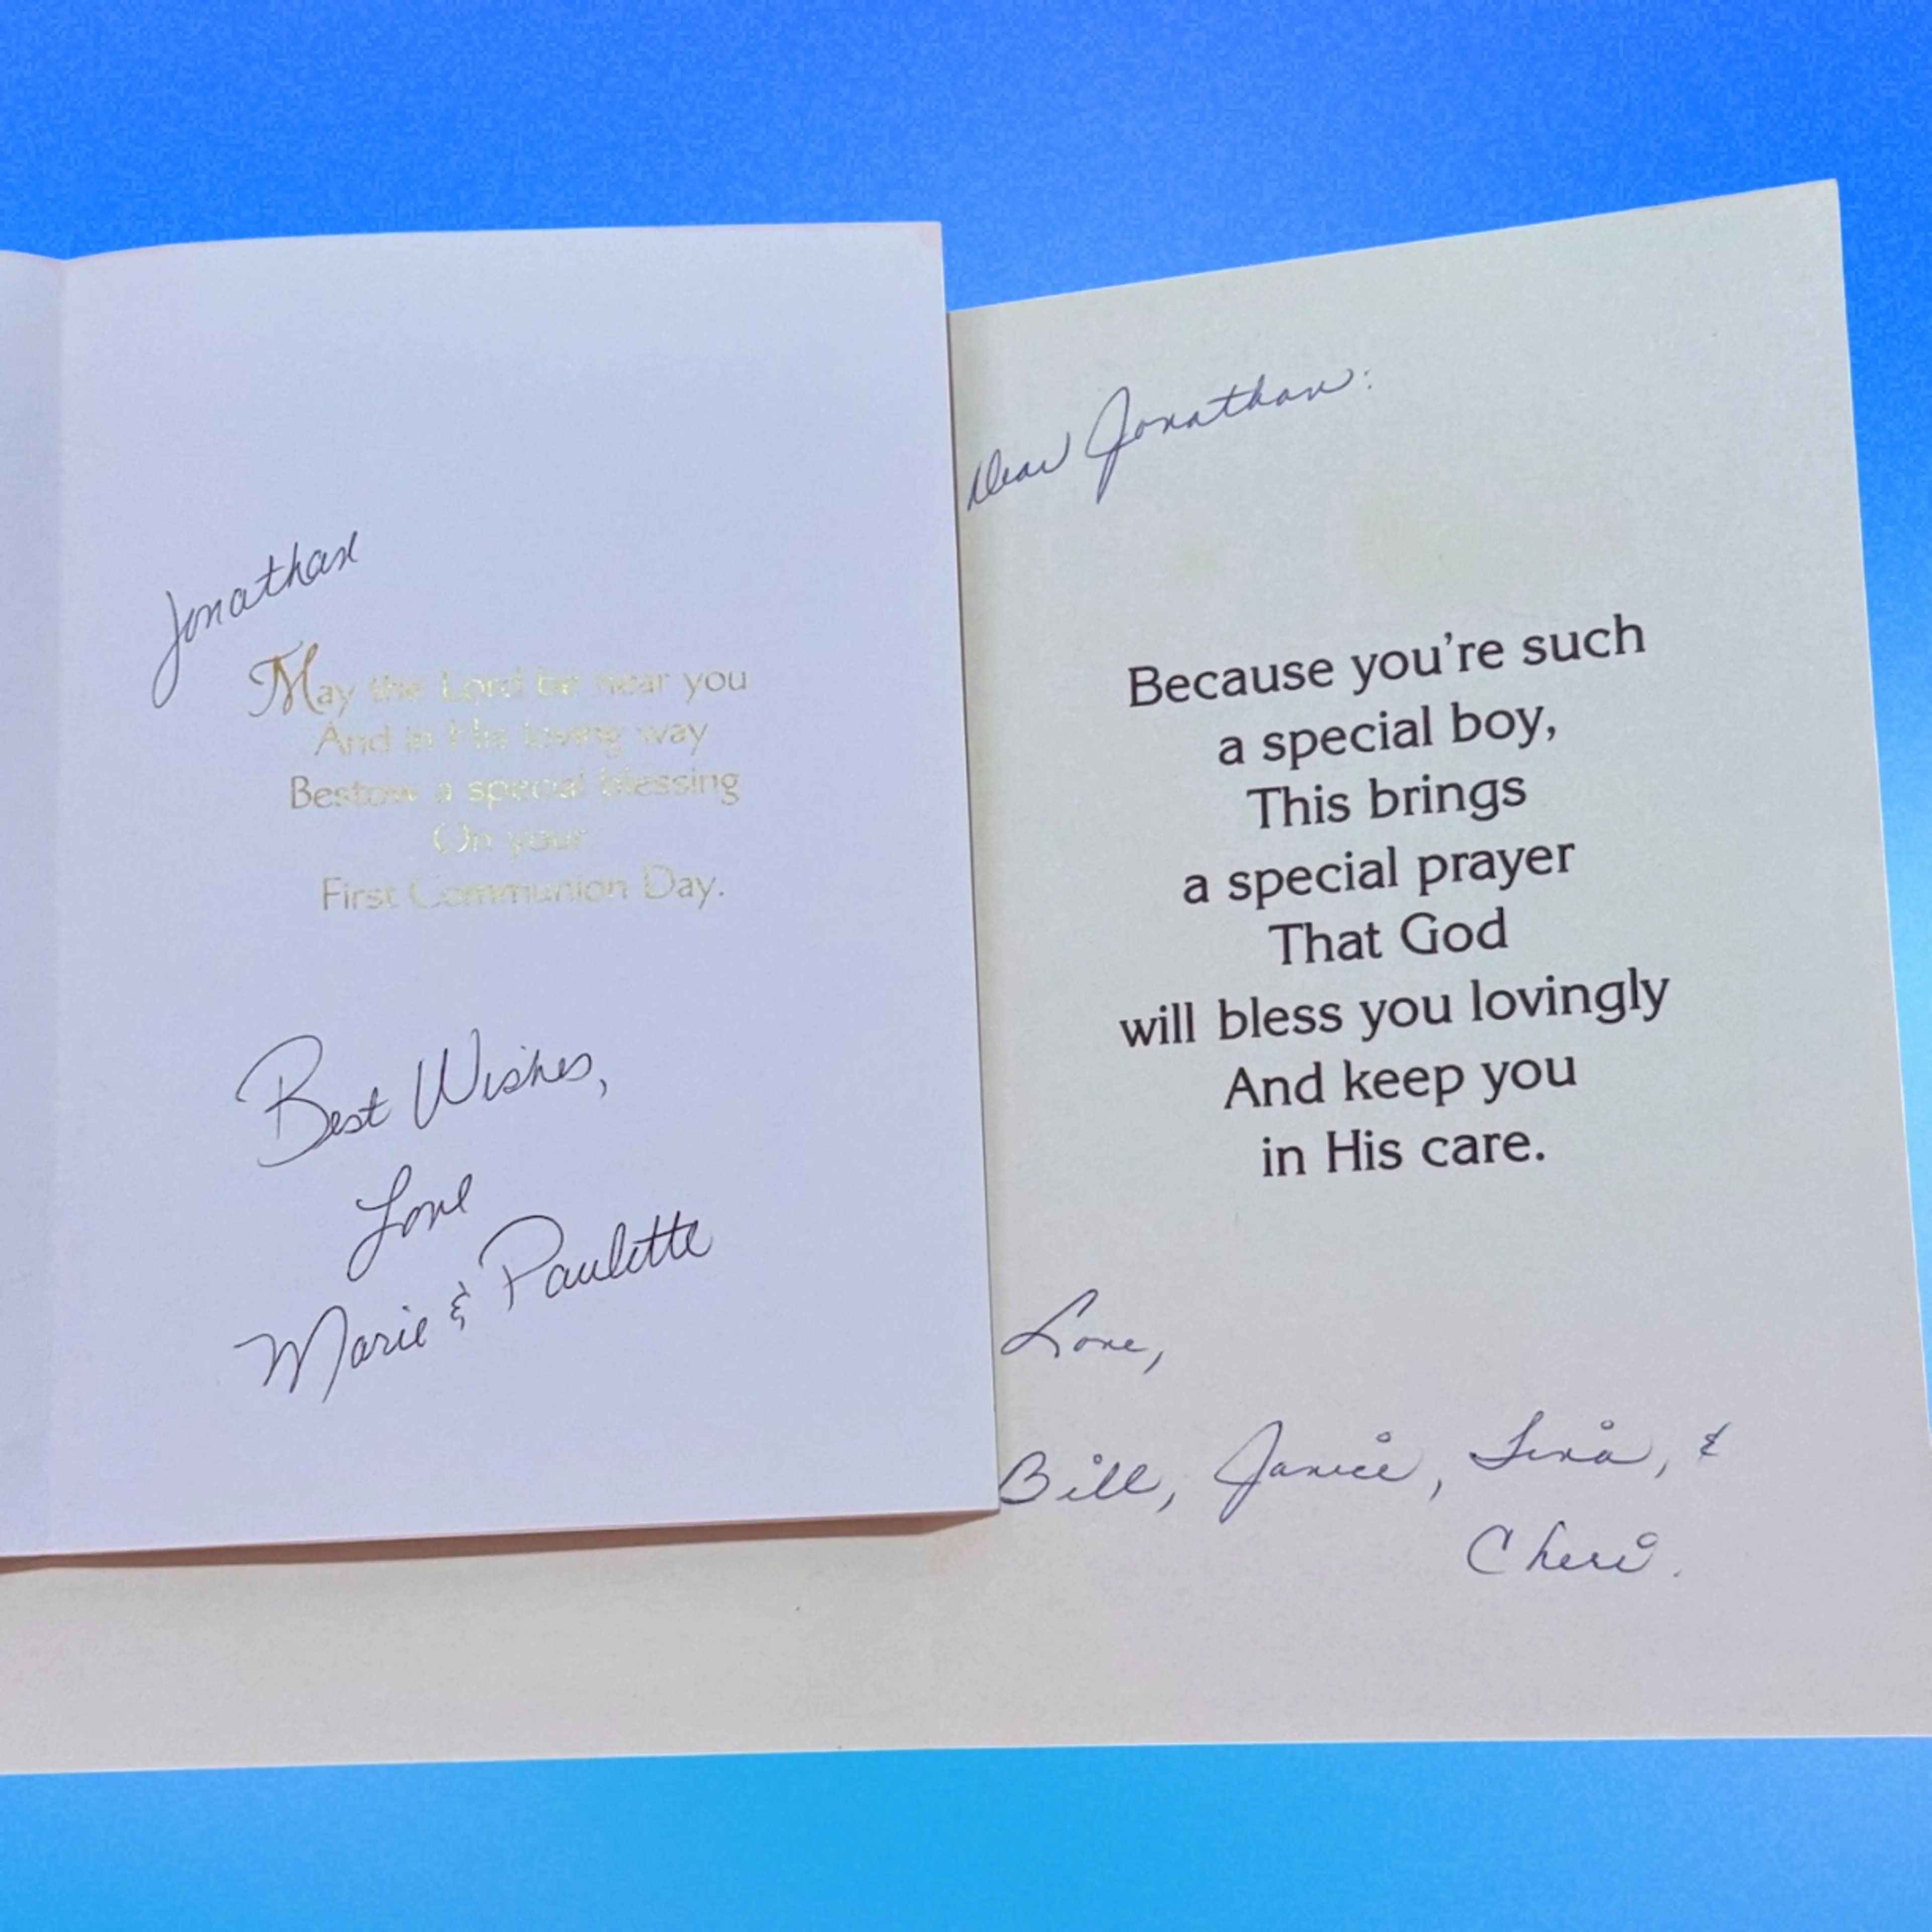 Jonathan
May the Lord be near you
And in His loving way
Bestow a special blessing
On your
First Communion Day.
Best Wishes,
Love
Marie & Paulette
Dear Jonathan:
Because you're such
a special boy,
This brings
a special prayer
That God
will bless you lovingly
And keep you
in His care.
Love,
Bill, Janice, Tina, &
Cheri.